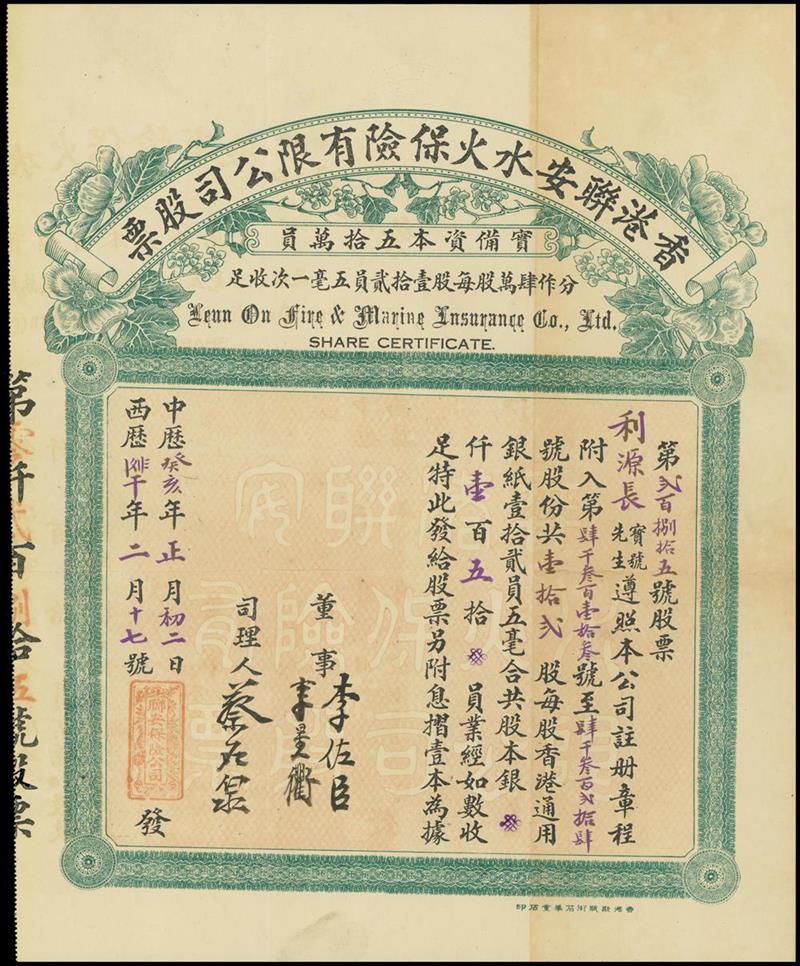 香港聯安水火保險有限公司股票
實備資本五拾萬員
分作肆萬股每股壹拾貳員五毫一次收足
Leun On Fire & Marine Insurance Co., Ltd.
SHARE CERTIFICATE.
第弍百捌拾五號股票
利源長寶號先生遵照本公司註册章程
附入第肆千叁百壹拾叁號至肆千叁百弍拾肆
號股份共壹拾弍股每股香港通用
銀紙壹拾貳員五毫合共股本銀
仟壹百五拾員業經如數收
足特此發給股票另附息摺壹本為據
董事李佐臣
李星衢
司理人蔡
中歷癸亥年正月初二日
西歷年二月十七號
聯安保險公司
發
第零仟弍百捌拾五號股票